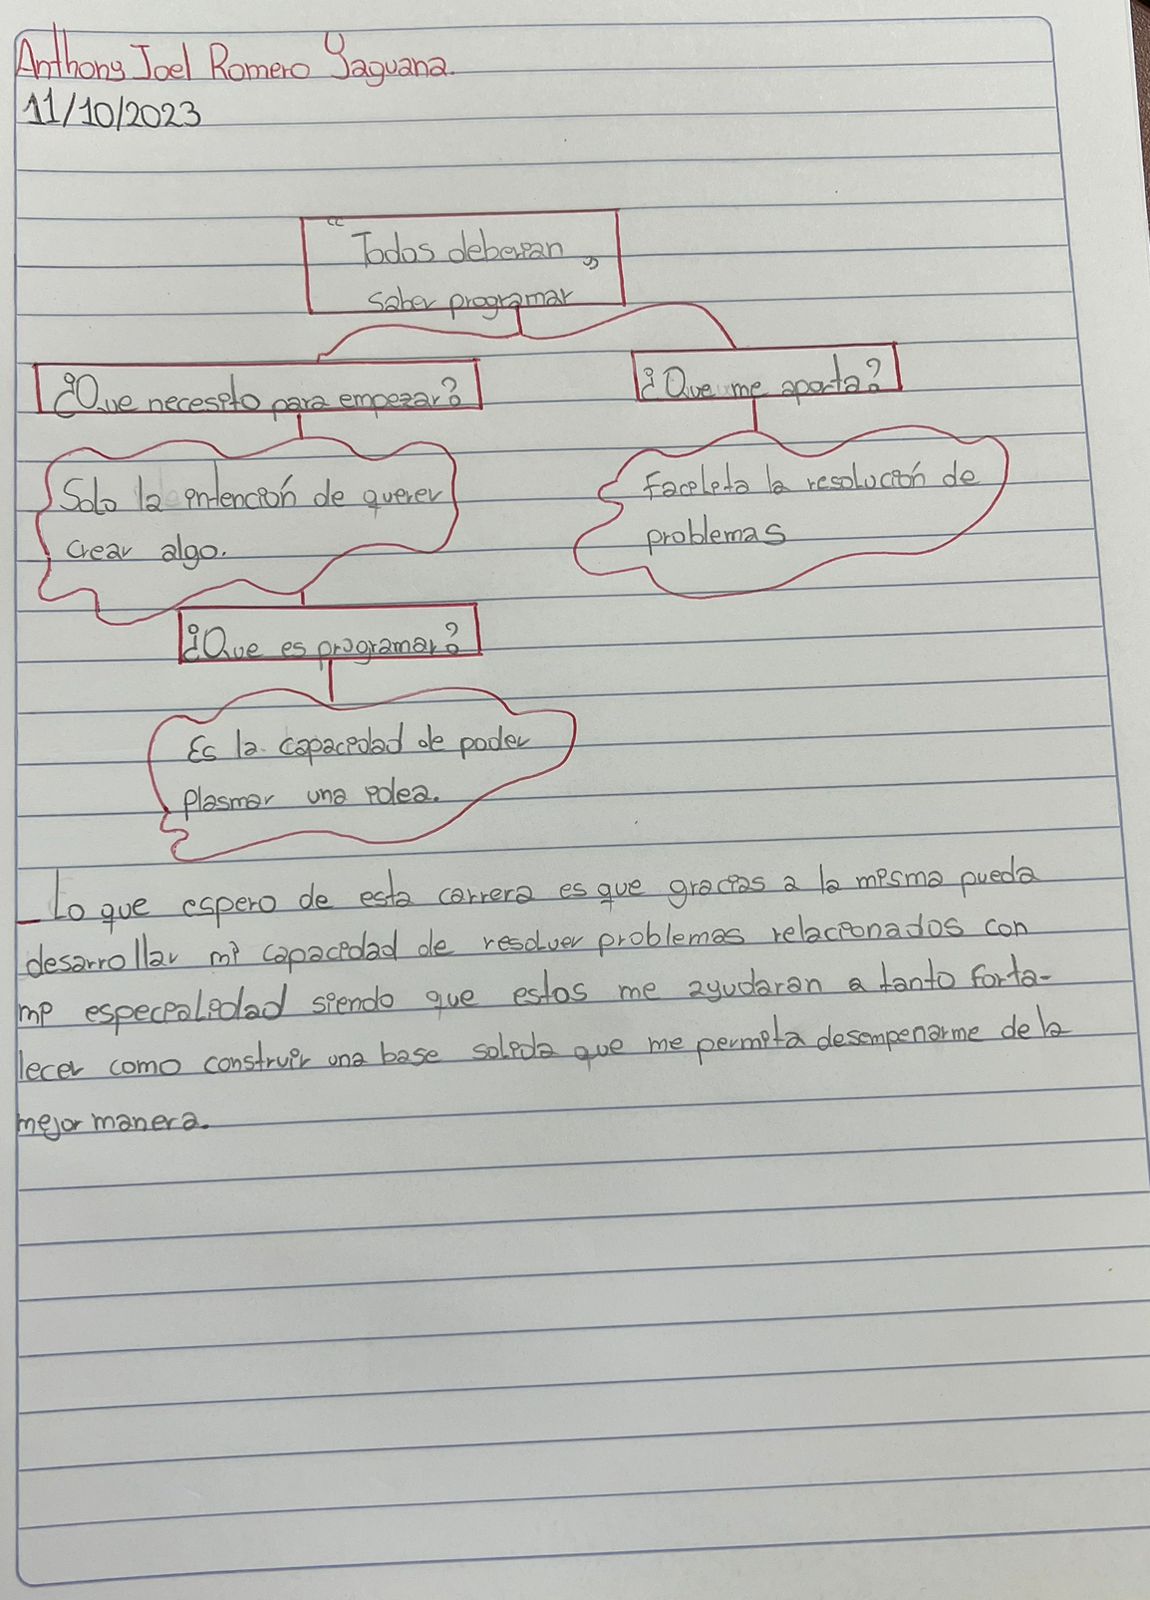 Anthony Joel Romero Yaguana.
11/10/2023
"Todos deberian
saber programar"
¿Que necesito para empezar?
¿Que me aporta?
Solo la intención de querer
crear algo.
Facilita la resolución de
problemas
¿Que es programar?
Es la capacidad de poder
plasmar una idea.
_Lo que espero de esta carrera es que gracias a la misma pueda
desarrollar mi capacidad de resolver problemas relacionados con
mi especialidad siendo que estos me ayudaran a tanto forta-
lecer como construir una base solida que me permita desempenarme de la
mejor manera.